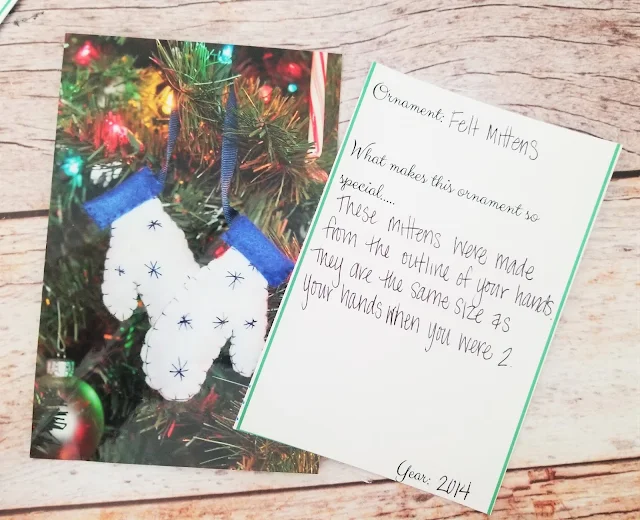 Ornament: Felt Mittens
What makes this ornament so
special....
These mittens were made
from the outline of your hands.
They are the same size as
your hands when you were 2.
Year: 2014